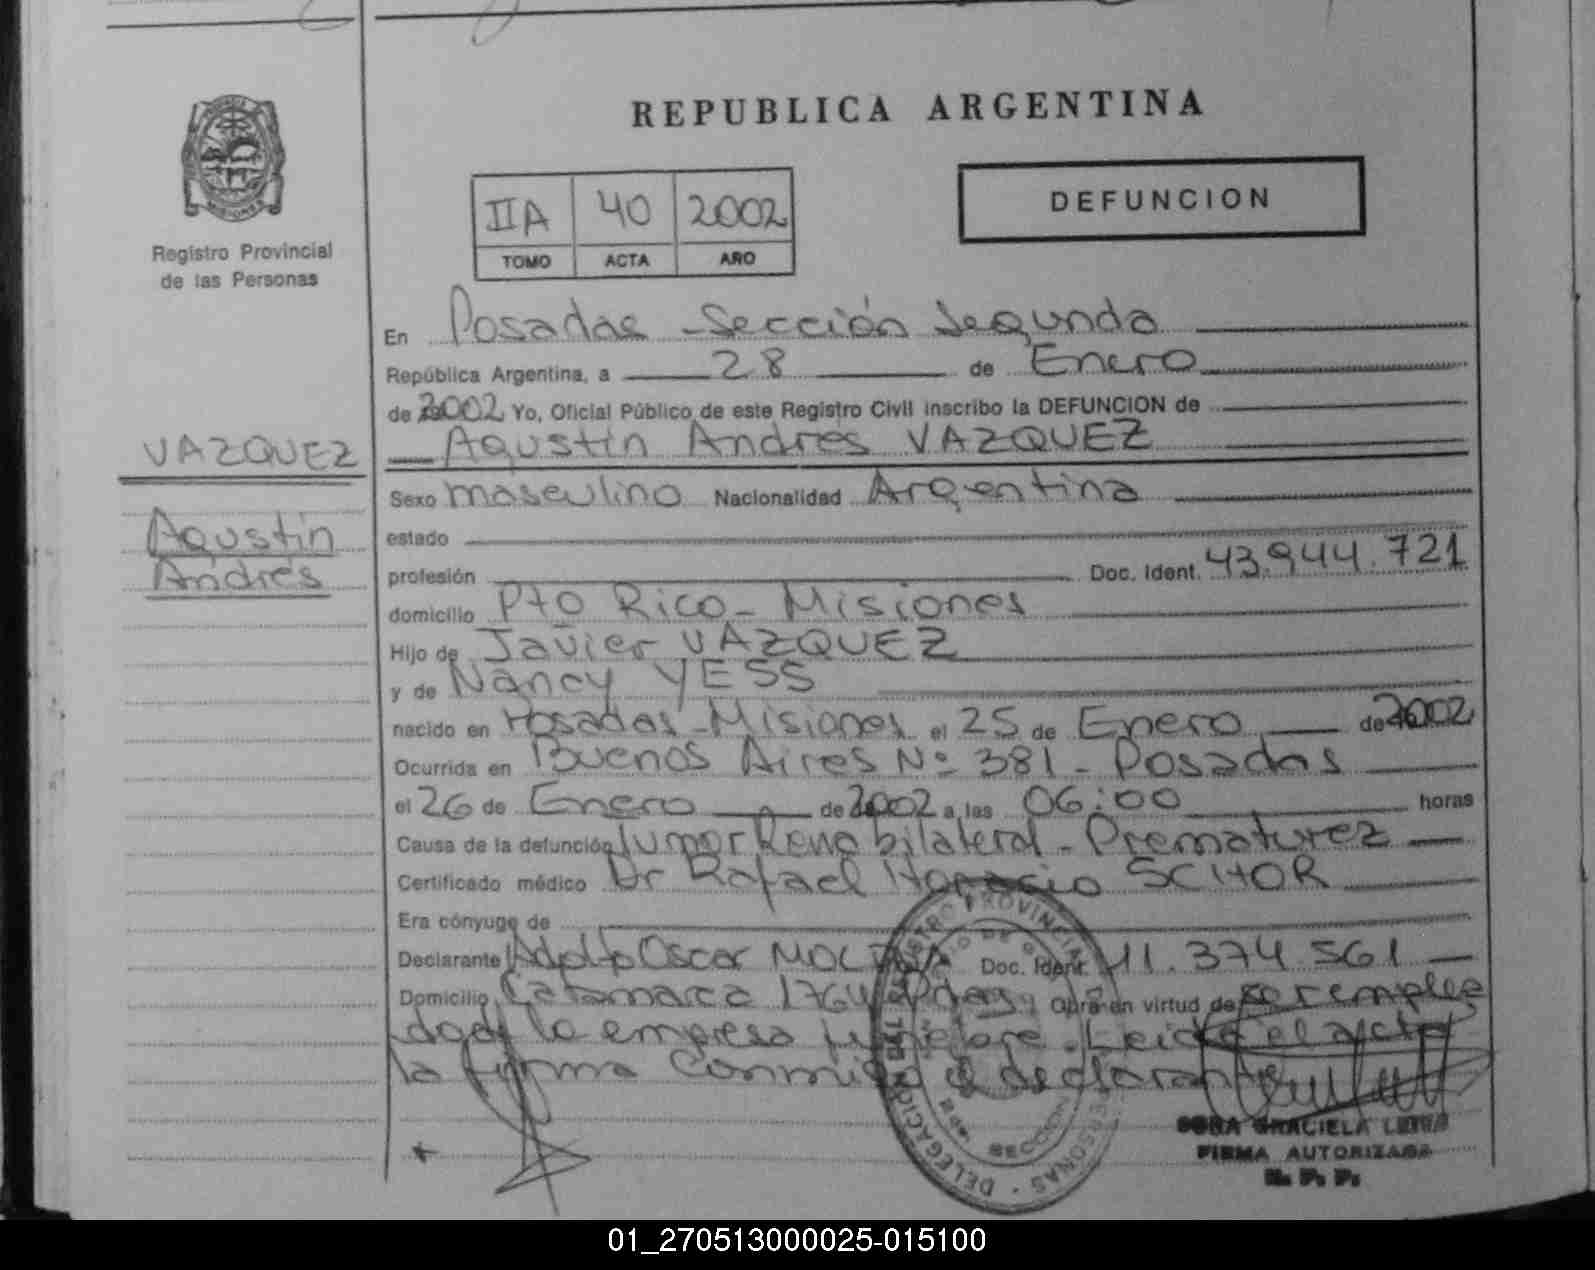 REPUBLICA ARGENTINA
MISIONES
Registro Provincial
de las Personas
IIA 40 2002
TOMO ACTA AÑO
DEFUNCION
En Posadas - Sección Segunda
República Argentina, a 28 de Enero
de 2002 Yo, Oficial Público de este Registro Civil inscribo la DEFUNCION de
VAZQUEZ
Agustín Andrés
Agustín Andrés VAZQUEZ
Sexo masculino Nacionalidad Argentina
estado
profesión Doc. Ident. 43.944.721
domicilio Pto Rico - Misiones
Hijo de Javier VAZQUEZ
y de Nancy YESS
nacido en Posadas - Misiones el 25 de Enero de 2002
Ocurrida en Buenos Aires Nº 381 - Posadas
el 26 de Enero de 2002 a las 06:00 horas
Causa de la defunción Tumor Renal bilateral - Prematurez
Certificado médico Dr Rafael Horacio SCHOR
Era cónyuge de
Declarante Adolfo Oscar Doc. Ident. 11.374.561
Domicilio Catamarca 1764 Pdas Obra en virtud de ser emplea
do de la empresa funebre. Leida el acta
la firma conmigo el declarante
GRACIELA
FIRMA AUTORIZADA
R. P. P.
DELEGACION
SECCION
01_270513000025-015100